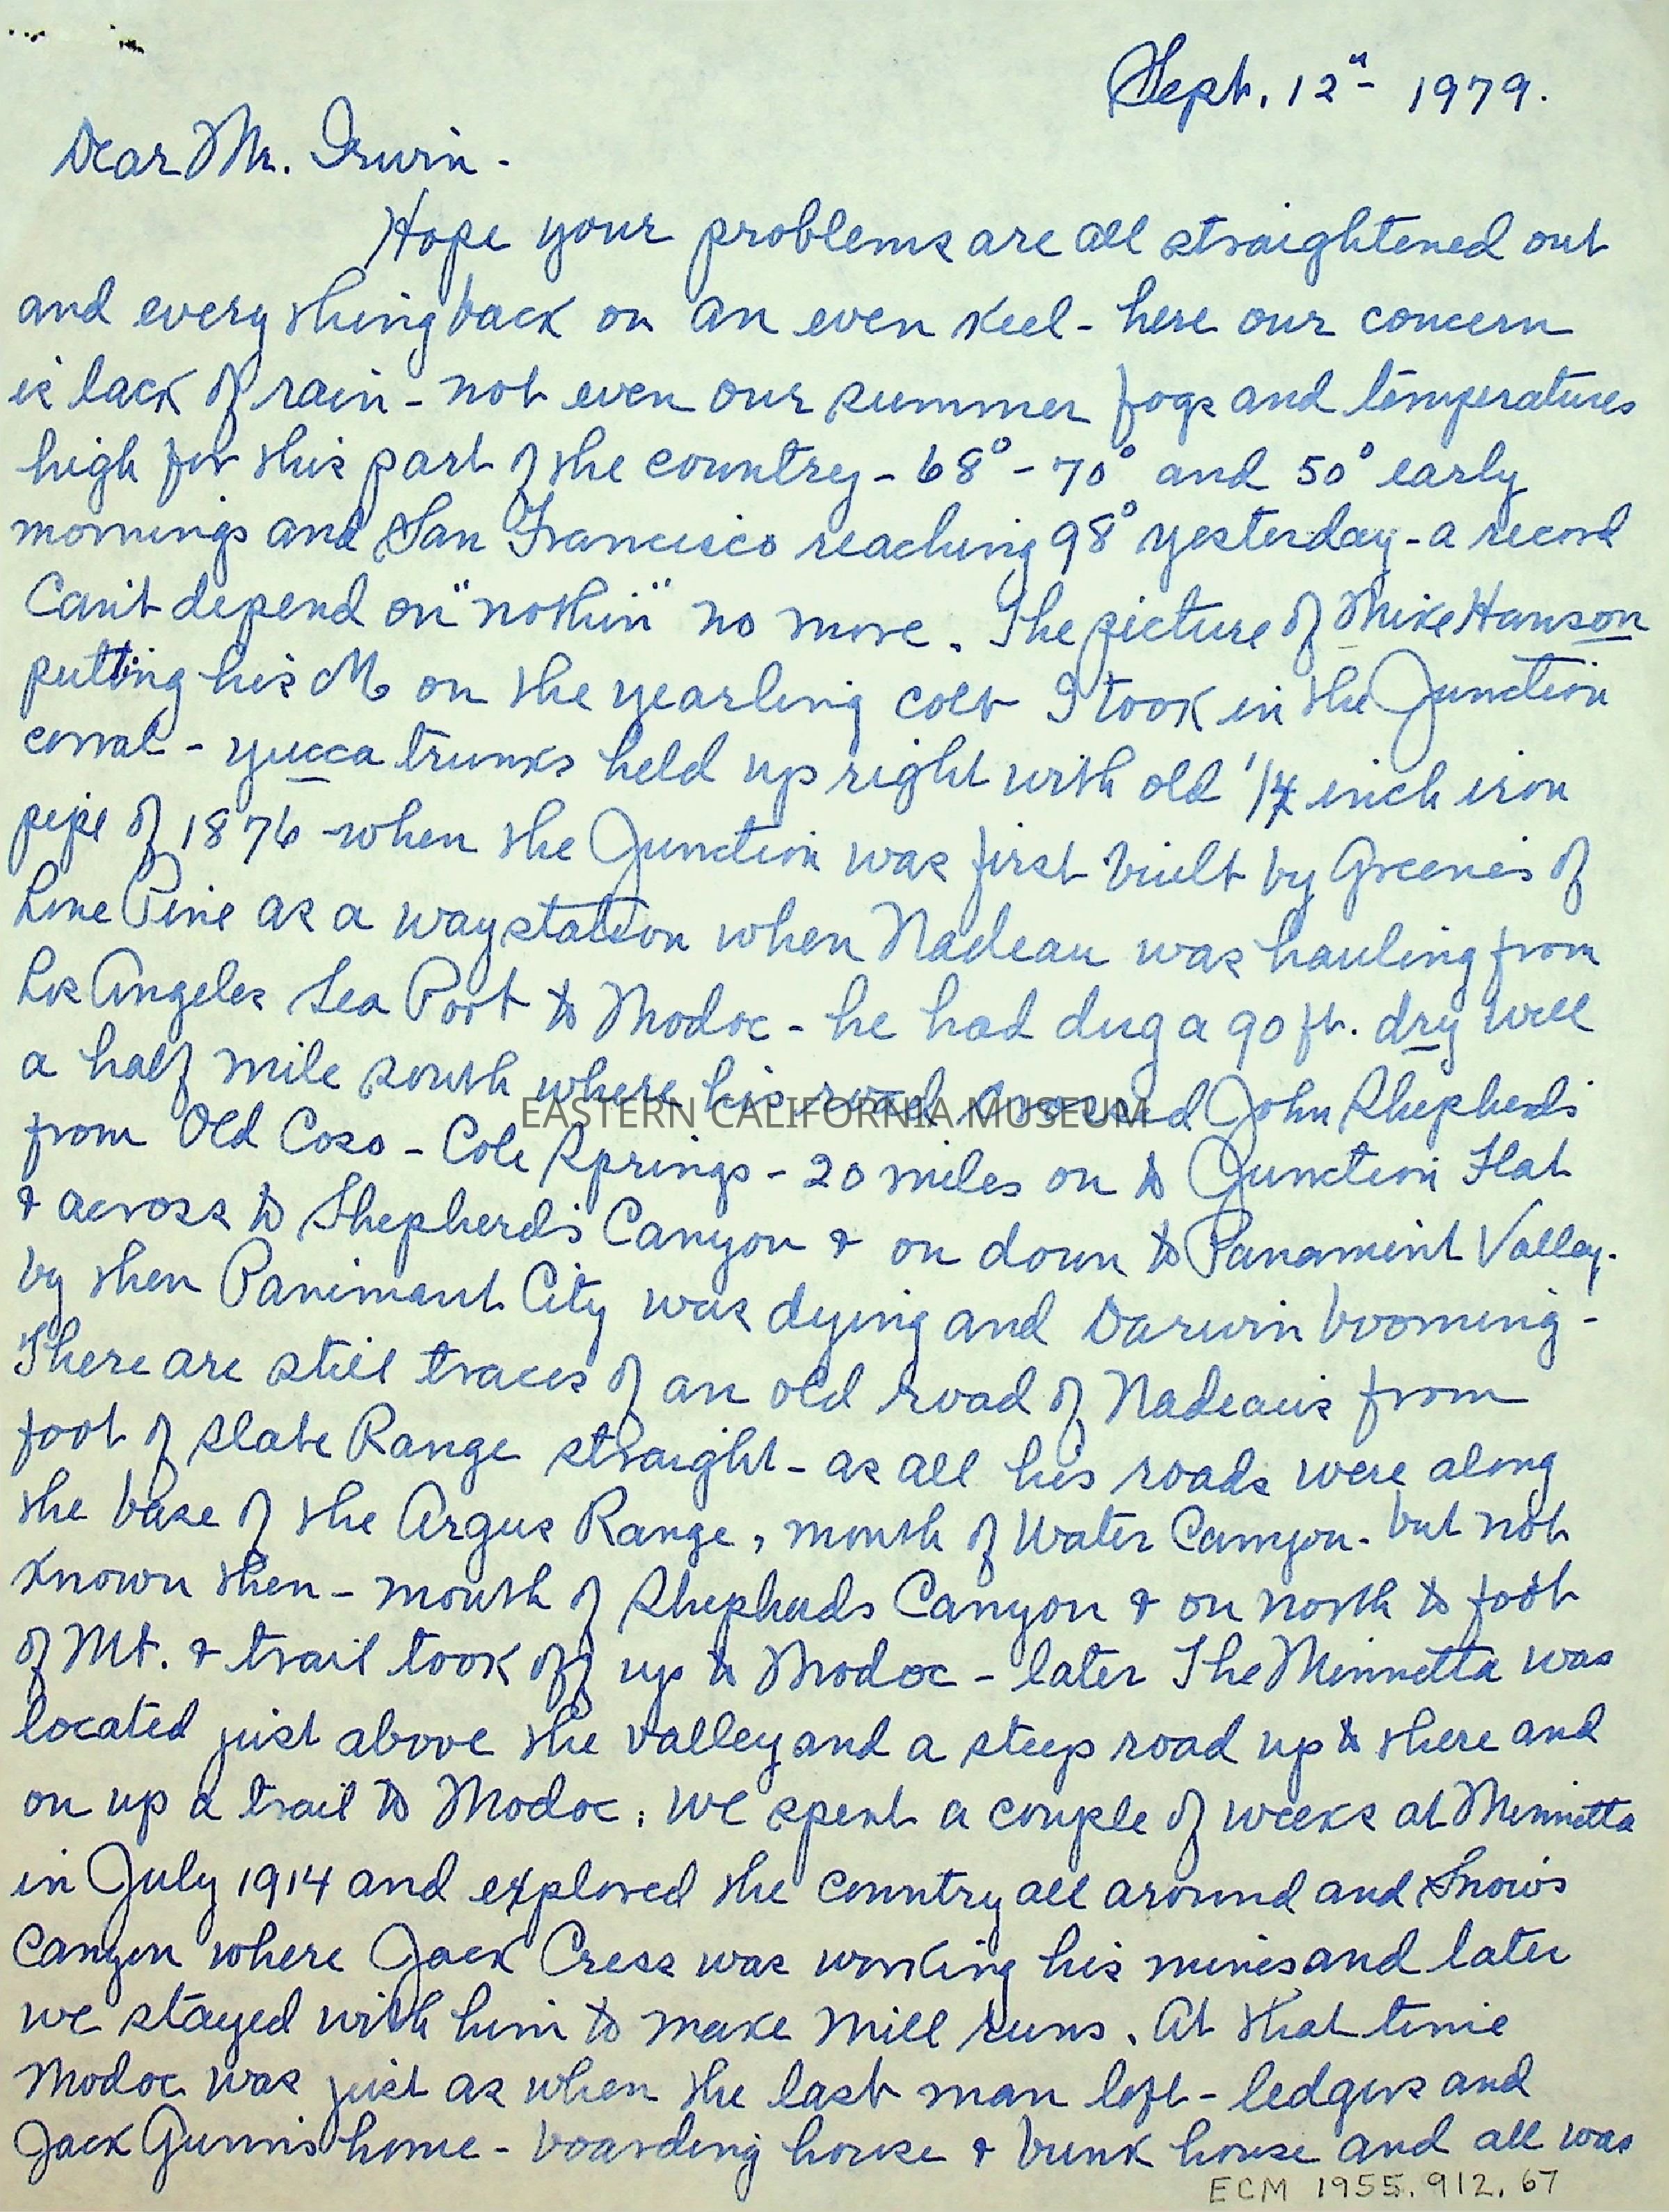 Sept. 12" - 1979.
Dear Mr. Irwin -
Hope your problems are all straightened out
and every thing back on an even keel - here our concern
is lack of rain - not even our summer fogs and temperatures
high for this part of the country - 68° - 70° and 50° early
mornings and San Francisco reaching 98° yesterday - a record
Can't depend on "nothin" no more. The picture of Mike Hanson
putting his M on the yearling colt I took in the Junction
corral - yucca trunks held up right with old 1/4 inch iron
pipe of 1876 - when the Junction was first built by Greene's of
Lone Pine as a way station when Nadeau was hauling from
Los Angeles Sea Port to Modoc - he had dug a 90 ft. dry well
a half mile south where his road crossed John Shepherd's
from Old Coso - Cole Springs - 20 miles on to Junction Flat
& across to Shepherd's Canyon & on down to Panamint Valley.
by then Panimant City was dying and Darwin booming -
There are still traces of an old road of Nadeau's from
foot of Slate Range straight - as all his roads were along
the base of the Argus Range, mouth of Water Canyon - but not
known then - mouth of Shepherds Canyon & on north to foot
of Mt. & trail took off up to Modoc - later The Minnetta was
located just above the valley and a steep road up to there and
on up a trail to Modoc. We spent a couple of weeks at Minnetta
in July 1914 and explored the country all around and Snow's
Canyon where Jack Cress was working his mines and later
we stayed with him to make mill runs. At that time
Modoc was just as when the last man left - ledgers and
Jack Gunn's home - boarding house & bunk house and all was
ECM 1955.912.67
EASTERN CALIFORNIA MUSEUM